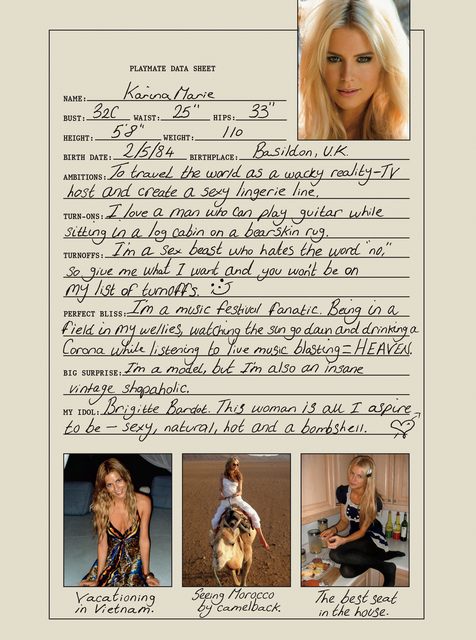 PLAYMATE DATA SHEET
NAME: Karina Marie
BUST: 32C WAIST: 25" HIPS: 33"
HEIGHT: 5'8" WEIGHT: 110
BIRTH DATE: 2/5/84 BIRTHPLACE: Basildon, U.K.
AMBITIONS: To travel the world as a wacky reality-TV
host and create a sexy lingerie line.
TURN-ONS: I love a man who can play guitar while
sitting in a log cabin on a bearskin rug.
TURNOFFS: I'm a sex beast who hates the word "no,"
so give me what I want and you won't be on
my list of turnoffs.
PERFECT BLISS: I'm a music festival fanatic. Being in a
field in my wellies, watching the sun go down and drinking a
Corona while listening to live music blasting = HEAVEN.
BIG SURPRISE: I'm a model, but I'm also an insane
vintage shopaholic.
MY IDOL: Brigitte Bardot. This woman is all I aspire
to be — sexy, natural, hot and a bombshell.
Vacationing
in Vietnam.
Seeing Morocco
by camelback.
The best seat
in the house.